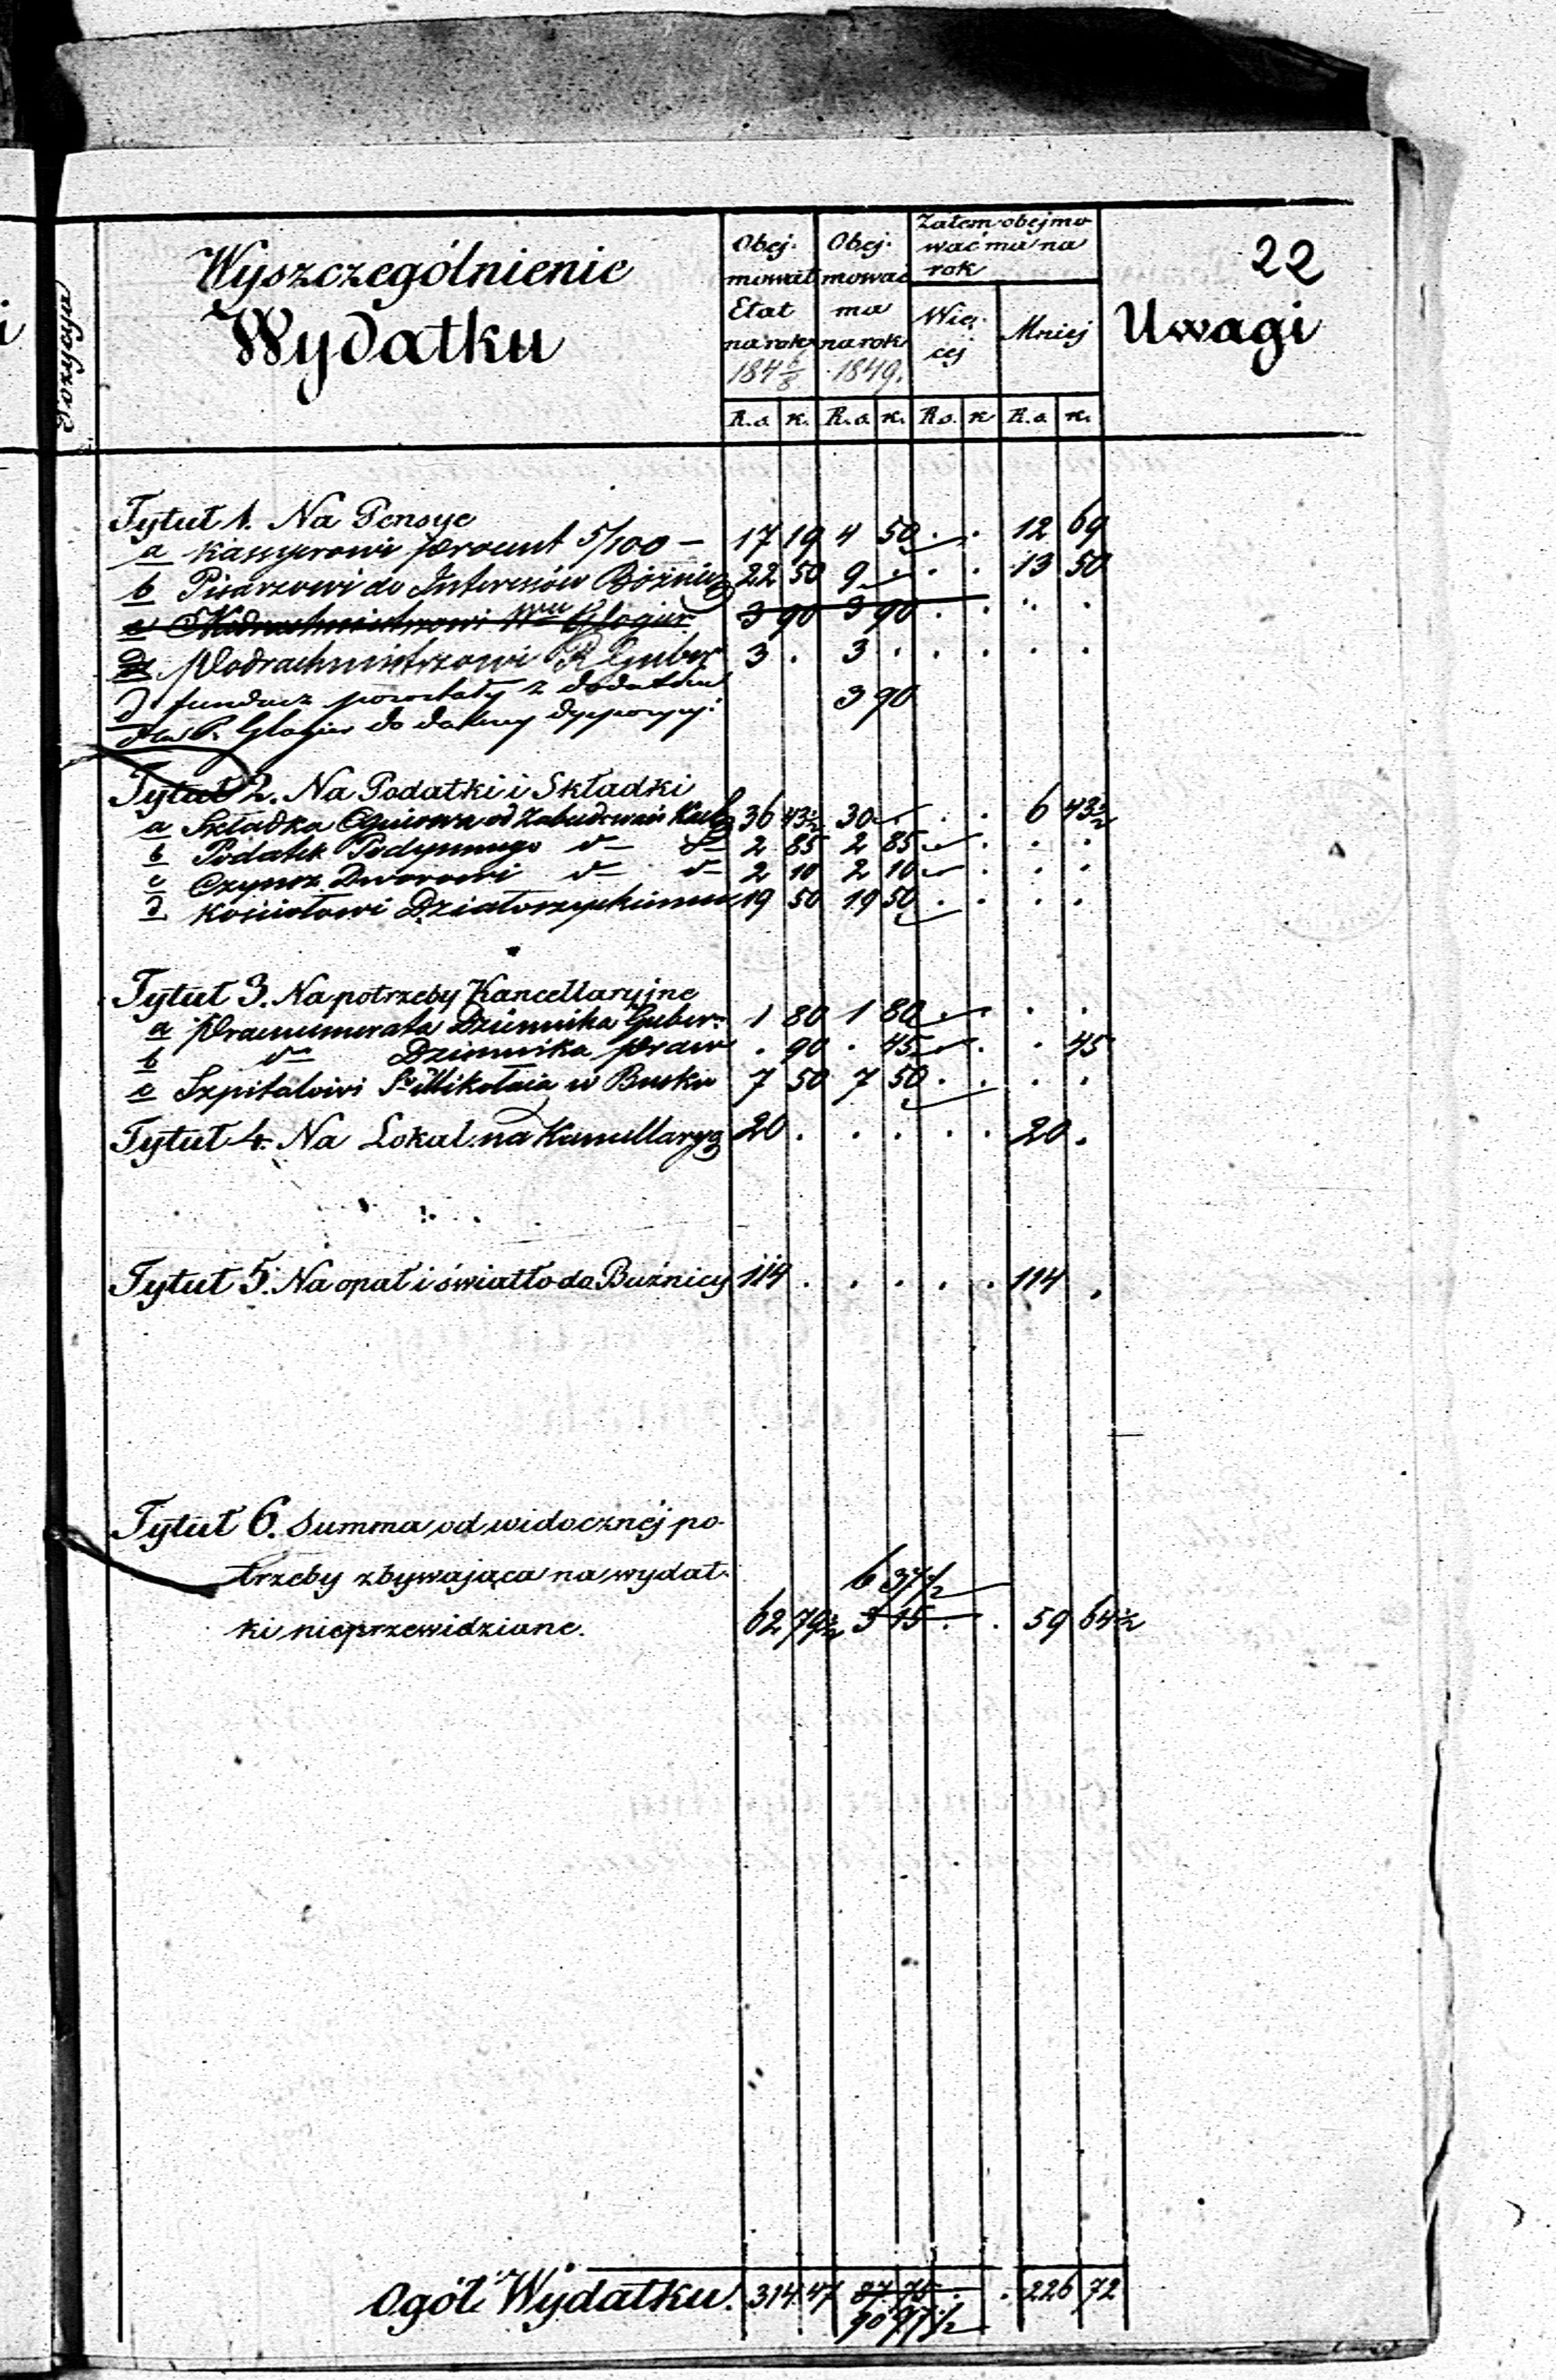 22
Pozycya
Wyszczególnienie
Wydatku
Obej-
mował
Etat
na rok
184 6/8
Obej-
mować
ma
na rok
1849.
Zatem obejmo
wać ma na
rok
Wię-
cej
Mniej
Uwagi
R.s. k. R.s. k. Rs. k R.s. k.
Tytuł 1. Na Pensye
a Kassyerowi procent 5/100 — 17 19 4 50 . . 12 69
b Pisarzowi do Interessów Bóżnicz 22 50 9 . . . 13 50
c Glogier 3 90 3 90 . . . .
Podrachmistrzowi R Guber 3 . 3 . . . . .
d fundusz powstały z dodatku 3 90
dla P. Glogier do dalszey dyspozycyi
Tytuł 2. Na Podatki i Składki
a Składka Ogniowa od Zabudowań 36 43½ 30 . . 6 43½
b Podatek Podymnego d— d— 2 85 2 85 . . . .
c Czynsz Dworowi d— d— 2 10 2 10 . . . .
d Kościołowi Działoszyckiemu 19 50 19 50 . . . .
Tytuł 3. Na potrzeby Kancellaryjne
a Prenumerata Dziennika Guber: 1 80 1 80 . . . .
b d— Dziennika praw . 90 . 45 . . . 45
c Szpitalowi Sgo Mikołaia w Busku 7 50 7 50 . . . .
Tytuł 4. Na Lokal na Kancellaryą 20 . . . . . 20 .
Tytuł 5. Na opał i światło do Bużnicy 114 . . . . . 114 .
Tytuł 6. Summa od widocznéj po-
trzeby zbywająca na wydat- 6 37½
ki nieprzewidziane. 62 79½ 3 15 . . 59 64½
Ogół Wydatku. 314 47 87 75 . . 226 72
90 97½